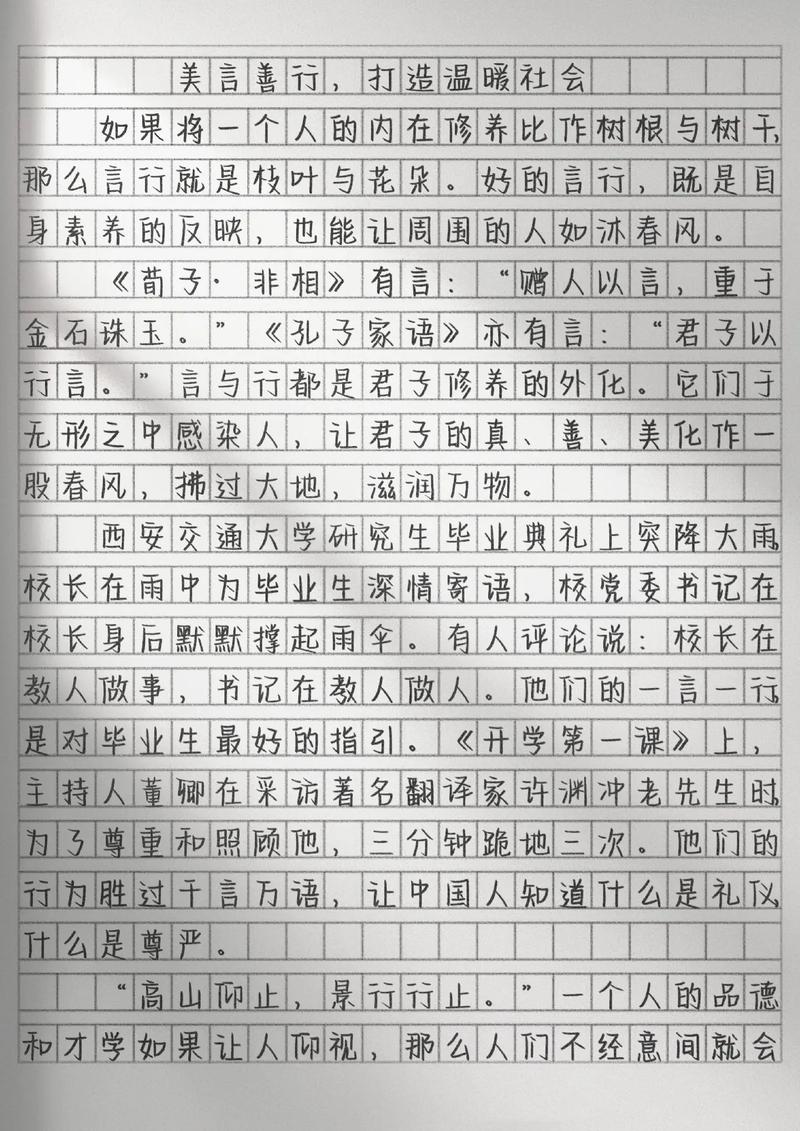 美言善行，打造温暖社会
如果将一个人的内在修养比作树根与树干，
那么言行就是枝叶与花朵。好的言行，既是自
身素养的反映，也能让周围的人如沐春风。
《荀子·非相》有言：“赠人以言，重于
金石珠玉。”《孔子家语》亦有言：“君子以
行言。”言与行都是君子修养的外化。它们于
无形之中感染人，让君子的真、善、美化作一
股春风，拂过大地，滋润万物。
西安交通大学研究生毕业典礼上突降大雨，
校长在雨中为毕业生深情寄语，校党委书记在
校长身后默默撑起雨伞。有人评论说：校长在
教人做事，书记在教人做人。他们的一言一行，
是对毕业生最好的指引。《开学第一课》上，
主持人董卿在采访著名翻译家许渊冲老先生时，
为了尊重和照顾他，三分钟跪地三次。他们的
行为胜过千言万语，让中国人知道什么是礼仪，
什么是尊严。
“高山仰止，景行行止。”一个人的品德
和才学如果让人仰视，那么人们不经意间就会